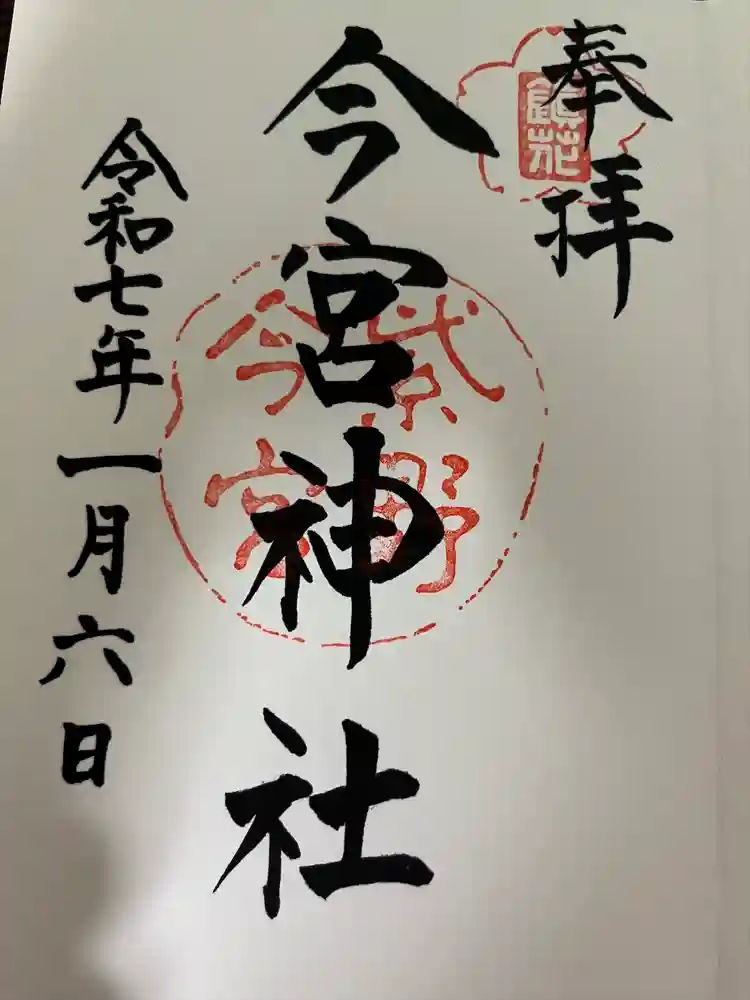 奉拝
鎮花
今宮神社
紫野
今宮
令和七年一月六日